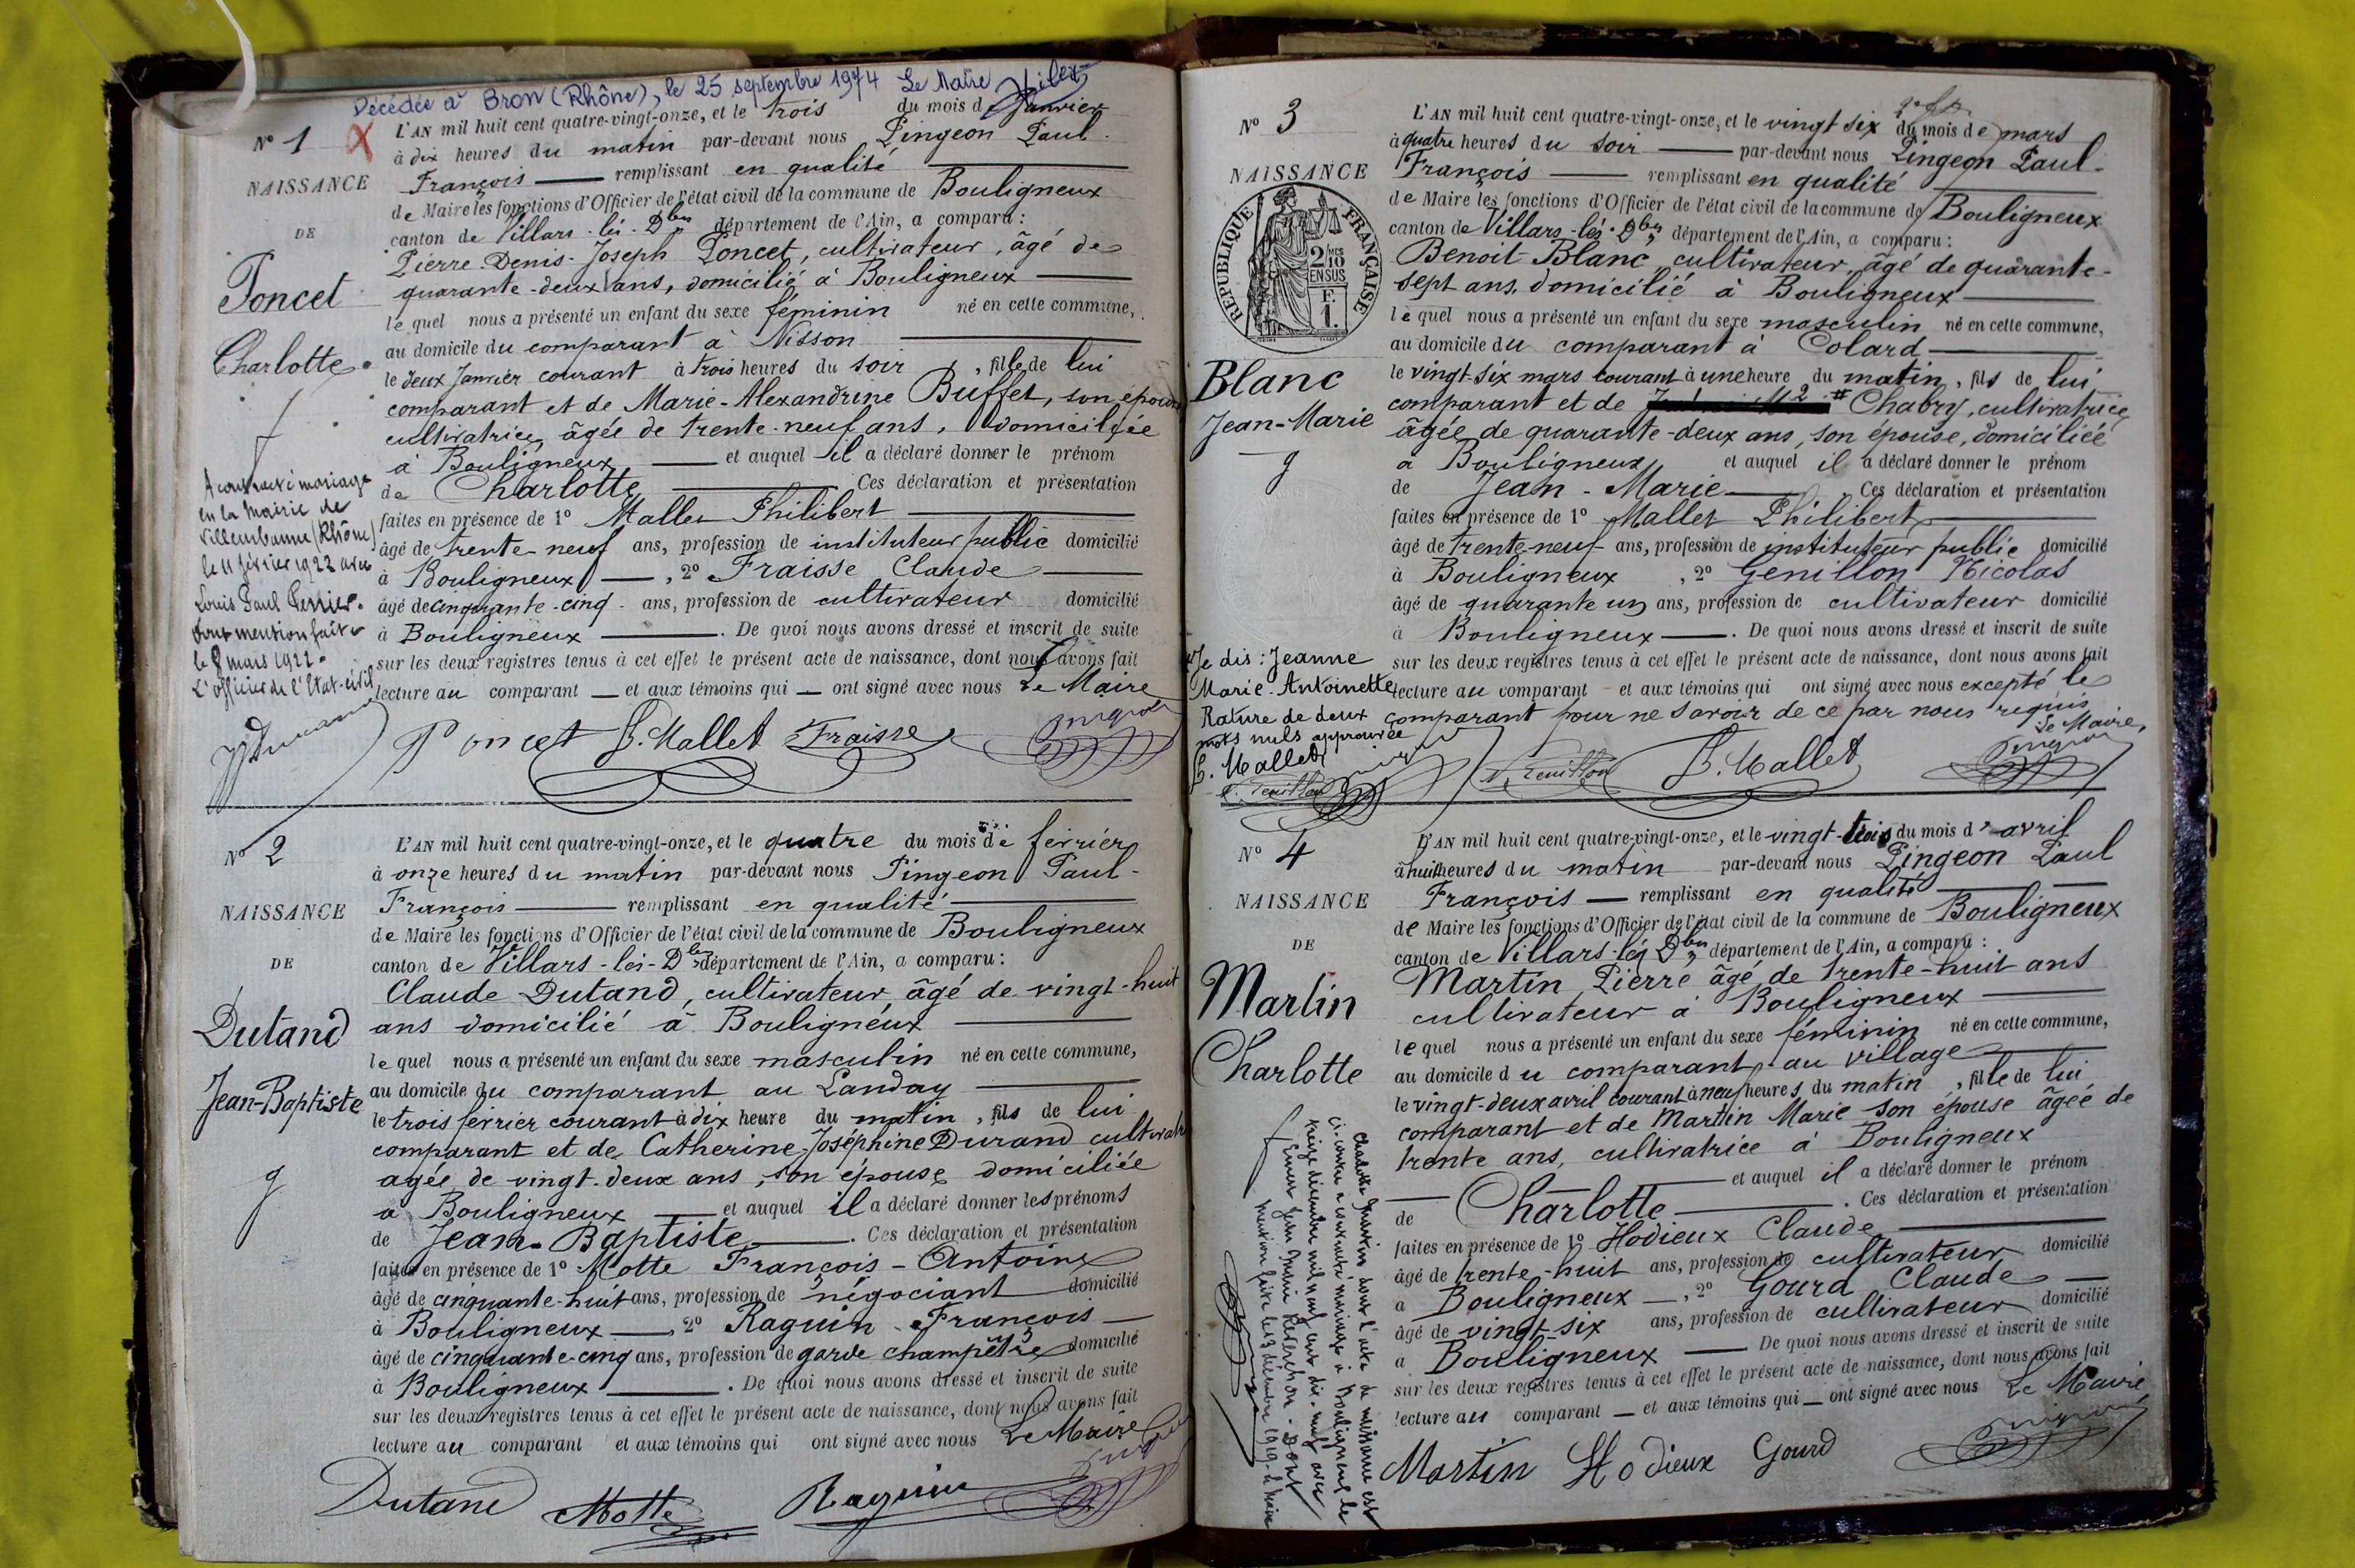 Décédée à Bron (Rhône), le 25 septembre 1974 Le Maire
N° 1
NAISSANCE
DE
Poncet
Charlotte
f
A contracté mariage
en la Mairie de
Villeurbanne (Rhône)
le 11 février 1922 avec
Louis Paul Perrier.
Dont mention faite
le 8 mars 1922.
L'officier de l'Etat-civil
L'AN mil huit cent quatre-vingt-onze, et le trois du mois de Janvier
à dix heures du matin par-devant nous Pingeon Paul-
François remplissant en qualité
de Maire les fonctions d'Officier de l'état civil de la commune de Bouligneux
canton de Villars-lès-Dbes département de l'Ain, a comparu :
Pierre-Denis-Joseph Poncet, cultivateur, âgé de
quarante-deux ans, domicilié à Bouligneux
lequel nous a présenté un enfant du sexe féminin né en cette commune,
au domicile du comparant à Nisson
le deux Janvier courant à trois heures du soir, fille de lui
comparant et de Marie-Alexandrine Buffet, son épouse
cultivatrice, âgée de trente-neuf ans, domiciliée
à Bouligneux et auquel il a déclaré donner le prénom
de Charlotte Ces déclaration et présentation
faites en présence de 1° Mallet Philibert
âgé de trente-neuf ans, profession de instituteur public domicilié
à Bouligneux, 2° Fraisse Claude
âgé de cinquante-cinq ans, profession de cultivateur domicilié
à Bouligneux. De quoi nous avons dressé et inscrit de suite
sur les deux registres tenus à cet effet le présent acte de naissance, dont nous avons fait
lecture au comparant et aux témoins qui ont signé avec nous Le Maire
Poncet P. Mallet Fraisse Pingeon
N° 2
NAISSANCE
DE
Dutand
Jean-Baptiste
g
L'AN mil huit cent quatre-vingt-onze, et le quatre du mois de février
à onze heures du matin par-devant nous Pingeon Paul-
François remplissant en qualité
de Maire les fonctions d'Officier de l'état civil de la commune de Bouligneux
canton de Villars-lès-Dbes département de l'Ain, a comparu :
Claude Dutand, cultivateur, âgé de vingt-huit
ans domicilié à Bouligneux
lequel nous a présenté un enfant du sexe masculin né en cette commune,
au domicile du comparant au Landay
le trois février courant à dix heure du matin, fils de lui
comparant et de Catherine-Joséphine Durand cultivatrice
agée de vingt-deux ans, son épouse domiciliée
à Bouligneux et auquel il a déclaré donner les prénoms
de Jean-Baptiste. Ces déclaration et présentation
faites en présence de 1° Motte François-Antoine
âgé de cinquante-huit ans, profession de négociant domicilié
à Bouligneux, 2° Raguin François
âgé de cinquante-cinq ans, profession de garde champêtre domicilié
à Bouligneux. De quoi nous avons dressé et inscrit de suite
sur les deux registres tenus à cet effet le présent acte de naissance, dont nous avons fait
lecture au comparant et aux témoins qui ont signé avec nous Le Maire
Dutand Motte Raguin Pingeon
N° 3
NAISSANCE
REPUBLIQUE FRANÇAISE
2/10 MES
EN SUS
F.
1.
Blanc
Jean-Marie
g
Je dis : Jeanne
Marie-Antoinette
Rature de deux
mots nuls approuvée
P. Mallet
L'AN mil huit cent quatre-vingt-onze, et le vingt six du mois de mars
à quatre heures du soir par-devant nous Pingeon Paul-
François remplissant en qualité
de Maire les fonctions d'Officier de l'état civil de la commune de Bouligneux
canton de Villars-lès-Dbes département de l'Ain, a comparu :
Benoit Blanc cultivateur, âgé de quarante-
sept ans, domicilié à Bouligneux
lequel nous a présenté un enfant du sexe masculin né en cette commune,
au domicile du comparant à Colard
le vingt-six mars courant à une heure du matin, fils de lui
comparant et de # Chabry, cultivatrice
âgée de quarante-deux ans, son épouse, domiciliée
à Bouligneux et auquel il a déclaré donner le prénom
de Jean-Marie. Ces déclaration et présentation
faites en présence de 1° Mallet Philibert
âgé de trente-neuf ans, profession de instituteur public domicilié
à Bouligneux, 2° Genillon Nicolas
âgé de quarante un ans, profession de cultivateur domicilié
à Bouligneux. De quoi nous avons dressé et inscrit de suite
sur les deux registres tenus à cet effet le présent acte de naissance, dont nous avons fait
lecture au comparant et aux témoins qui ont signé avec nous excepté le
comparant pour ne savoir de ce par nous requis
Le Maire,
N. Genillon P. Mallet Pingeon
N° 4
NAISSANCE
DE
Martin
Charlotte
f
Charlotte Martin dont l'acte de naissance est
ci-contre a contracté mariage à Bouligneux le
treize décembre mil neuf cent dix-neuf avec
Jean Marie Dont
mention faite le 13 décembre 1919. Le Maire
L'AN mil huit cent quatre-vingt-onze, et le vingt-trois du mois d'avril
à huit heures du matin par-devant nous Pingeon Paul
François remplissant en qualité
de Maire les fonctions d'Officier de l'état civil de la commune de Bouligneux
canton de Villars-lès Dbes département de l'Ain, a comparu :
Martin Pierre âgé de trente-huit ans
cultivateur à Bouligneux
lequel nous a présenté un enfant du sexe féminin né en cette commune,
au domicile du comparant au village
le vingt-deux avril courant à neuf heures du matin, fille de lui
comparant et de Martin Marie son épouse âgée de
trente ans, cultivatrice à Bouligneux
et auquel il a déclaré donner le prénom
de Charlotte. Ces déclaration et présentation
faites en présence de 1° Hodieux Claude
âgé de trente-huit ans, profession de cultivateur domicilié
à Bouligneux, 2° Gourd Claude
âgé de vingt-six ans, profession de cultivateur domicilié
à Bouligneux De quoi nous avons dressé et inscrit de suite
sur les deux registres tenus à cet effet le présent acte de naissance, dont nous avons fait
lecture au comparant et aux témoins qui ont signé avec nous Le Maire
Martin Hodieux Gourd Pingeon